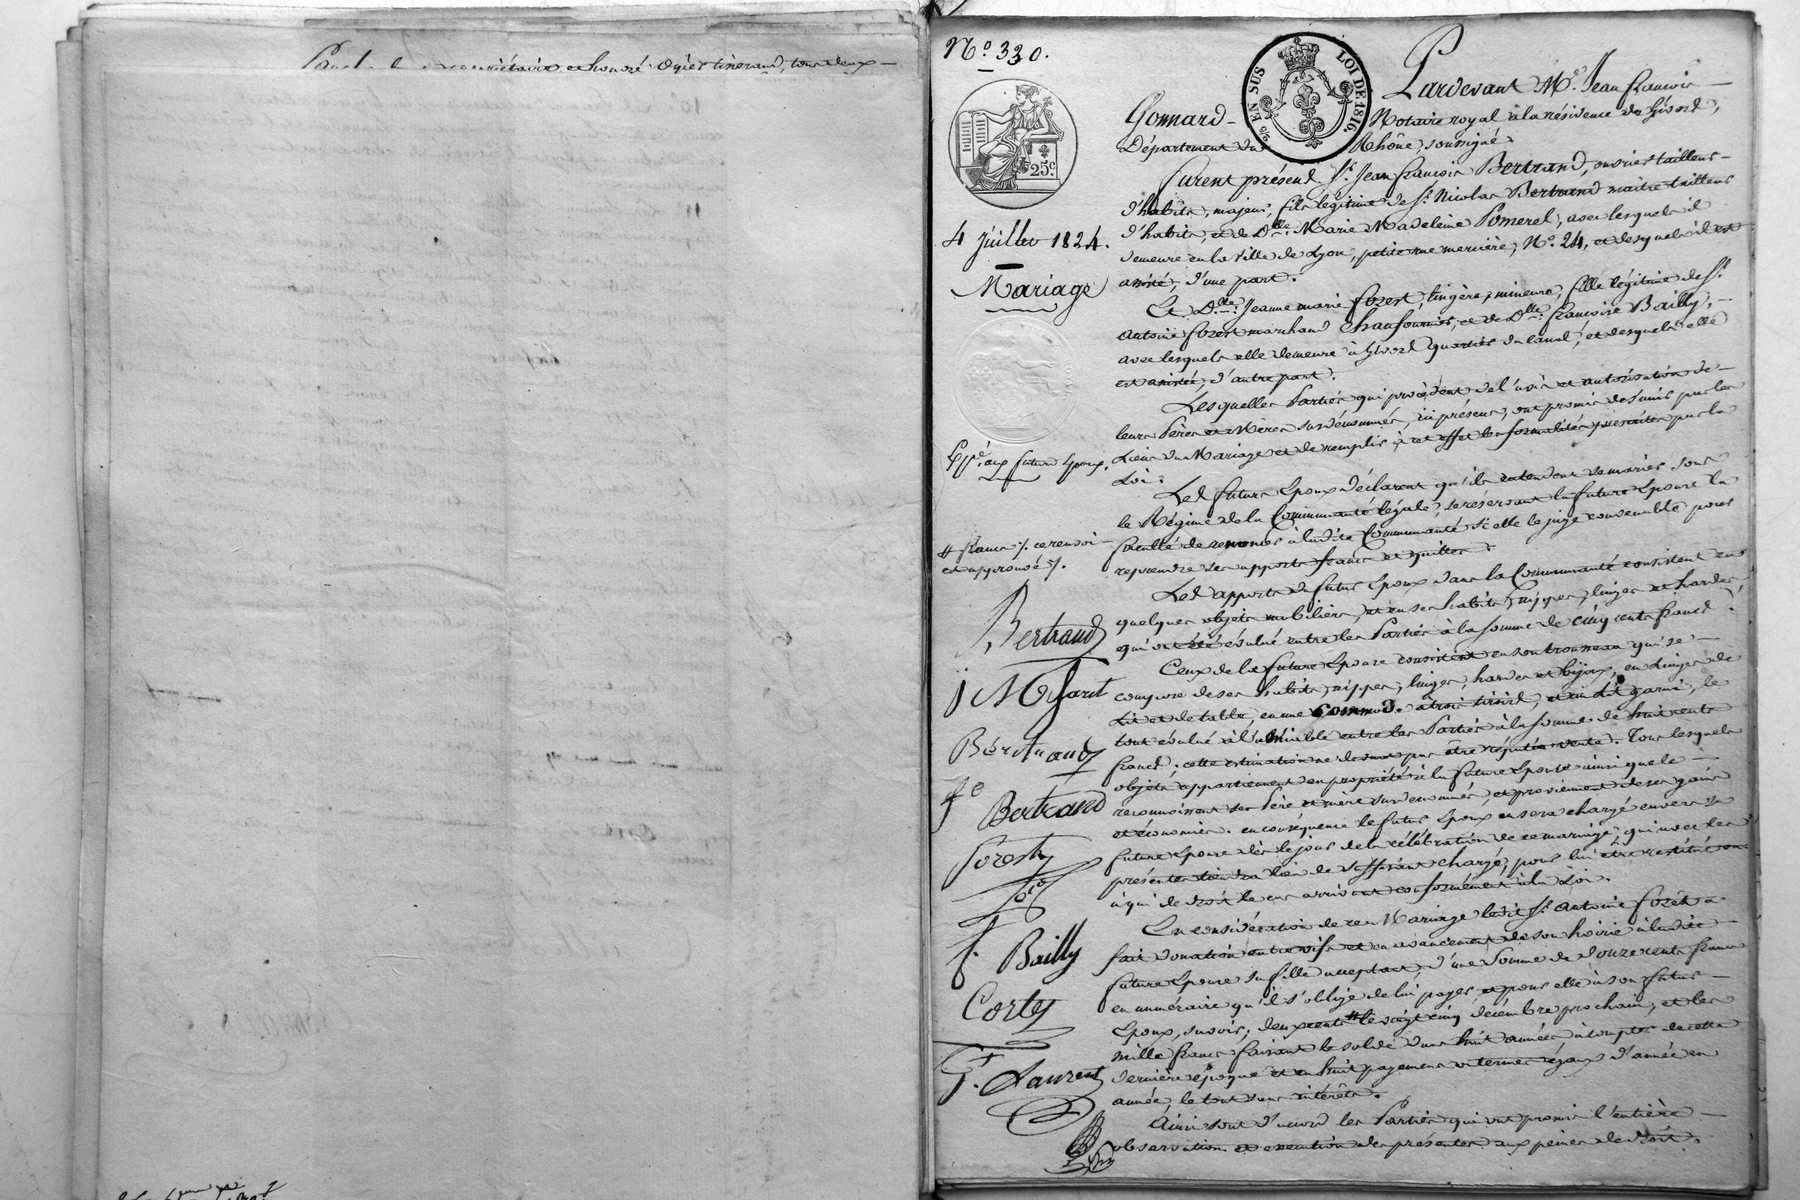 propriétaire et honoré Ogier tisserand, tous deux
N.o 330.
EN SUS
LOI DE 1816.
25c
4 Juillet 1824.
Mariage
Exp.é aux futurs Epoux.
# francs ./. ce renvoi
est approuvé ./.
Bertrand
Bertrand
Forest
f. Bailly
Corty
Laurent
Pardevant M.e Jean françois
Gonnard Notaire royal à la résidence de Givord,
Département du Rhône, soussigné.
furent présens S.r Jean françois Bertrand, ouvrier tailleur
d'habits, majeur, fils légitime de S.r Nicolas Bertrand maitre tailleur
d'habits, et de D.lle Marie Madeleine Pomerel, avec lesquels il
demeure en la ville de Lyon, petite rue mercière, N.o 24, et desquels il est
assisté, d'une part.
Et D.lle Jeanne marie forest, lingère, mineure, fille légitime de S.r
Antoine forest marchand Chaufournier, et de D.lle françoise Bailly,
avec lesquels elle demeure à Givord quartier du Canal, et desquels elle
est assistée, d'autre part.
Lesquelles Parties qui procèdent de l'avis et autorisation de
leurs Pères et Mères susdénommés, ici présens, ont promis de s'unir par les
Liens du Mariage et de remplir à cet effet les formalités prescrites par la
Loi.
Les futurs Epoux déclarent qu'ils entendent se marier sous
le Régime de la Communauté légale, se réservant la future Epouse la
faculté de renoncer à ladite Communauté si elle le juge convenable pour
reprendre ses apports francs et quittes.
Les apports du futur Epoux dans la Communauté consistent en
quelques objets mobiliers, et en ses habits, nippes, linges et hardes
qui ont été évalué entre les Parties à la somme de cinq cents francs.
Ceux de la future Epouse consistent en son trousseau qui se
compose de ses habits, nippes, linges, hardes et bijoux, en Linges de
Lit et de table, en une Commode à trois tiroirs, et un Lit garni, le
tout évalué à l'amiable entre les Parties à la somme de huit cents
francs; cette estimation ne devant pas être réputée vente. Tous lesquels
objets appartiennent en propriété à la future Epouse ainsi que le
reconnoissent ses Père et mère susdénommés, et proviennent de ses gains
et économies. en conséquence le futur Epoux en sera chargé envers sa
future Epouse dès le jour de la célébration de ce mariage, qui avec les
présentes tiendra lieu de suffisant chargé, pour lui être restitué ou
à qui de droit le cas arrivant conformément à la Loi.
En considération de ce Mariage ledit S.r Antoine forêt a
fait donation entre vifs et en avancement de son hoirie à ladite
future Epouse sa fille acceptant, d'une Somme de douze cents francs
en numéraire qu'il s'oblige de lui payer et pour elle à son futur
Epoux, savoir; deux cents # le vingt cinq décembre prochain, et les
mille francs faisant le solde dans huit années à compter de cette
dernière époque et en huit payemens et termes égaux d'année en
année, le tout sans intérêts.
Ainsi sont d'accord les Parties qui ont promis l'entière
observation et exécution des présentes aux peines de droit.